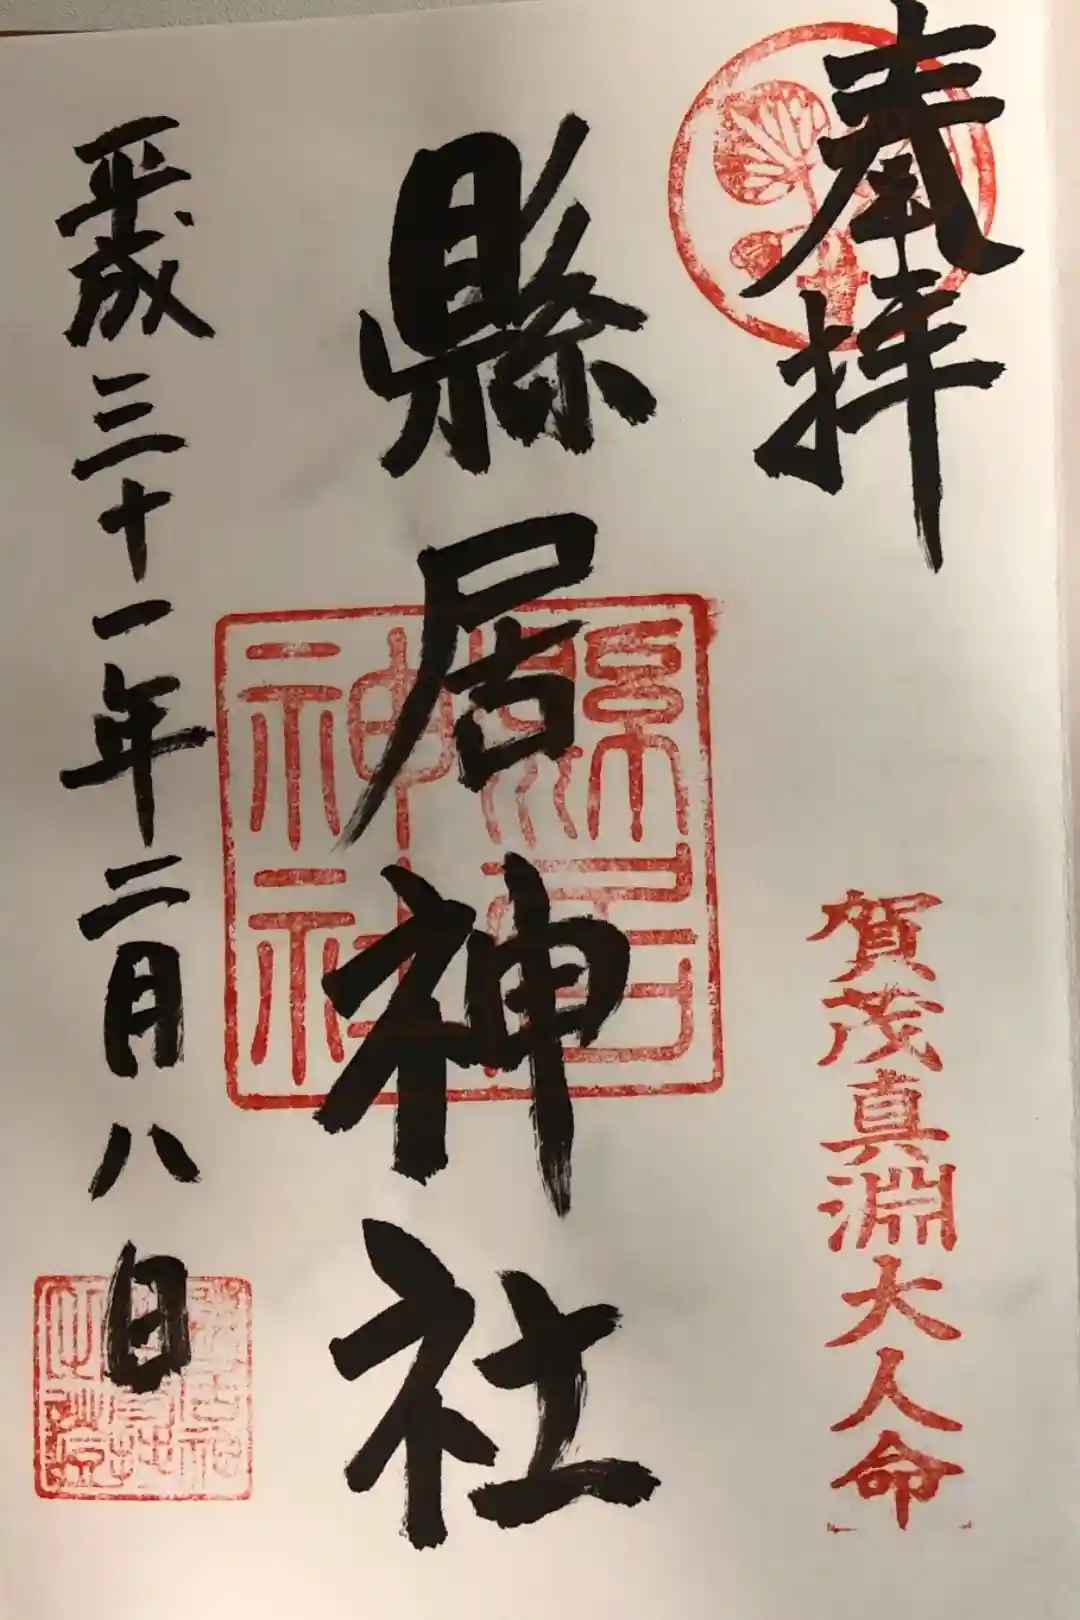 奉拝
賀茂真淵大人命
縣居神社
縣居神社
平成三十一年二月八日